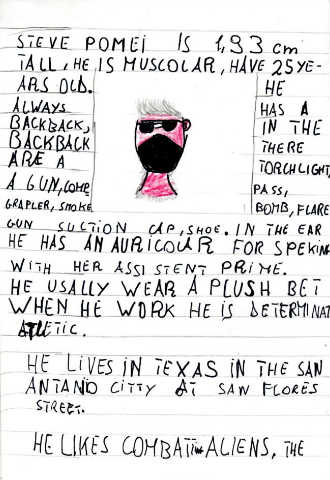 STEVE POMEI IS 1,93 cm
TALL, HE IS MUSCOLAR, HAVE 25 YE-
ARS OLD. HE
ALWAYS HAS A
BACKBACK, IN THE
BACKBACK THERE
ARE A TORCHLIGHT,
A GUN, COMP, PASS,
GRAPLER, SMOKE BOMB, FLARE
GUN SUCTION CAP, SHOE. IN THE EAR
HE HAS AN AURICOLAR FOR SPEKING
WITH HER ASSISTENT PRIME.
HE USALLY WEAR A PLUSH BET
WHEN HE WORK HE IS DETERMINAT
ATLETIC.
HE LIVES IN TEXAS IN THE SAN
ANTANIO CITTY AT SAN FLORES
STREET.
HE LIKES COMBATIN ALIENS, THE